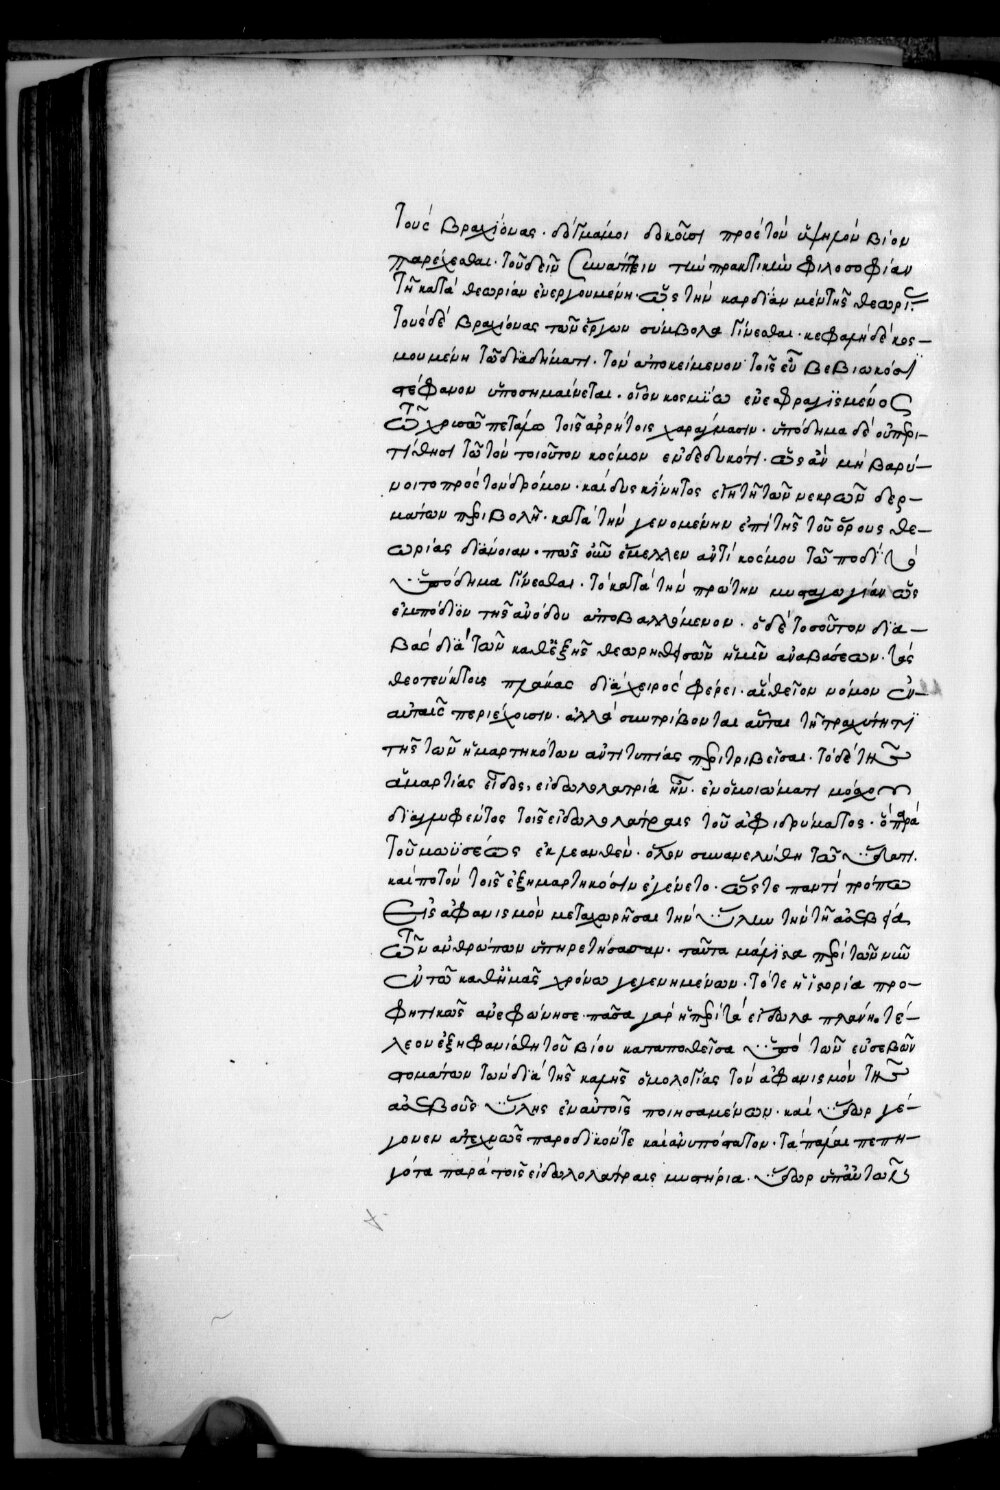 τοὺς βραχιόνας. δεῖγμά μοι δοκοῦσι πρὸς τὸν ὑψηλὸν βίον
παρέχεσθαι. τοῦ δεῖν συνάπτειν τὴν πρακτικὴν φιλοσοφίαν
τῇ κατὰ θεωρίαν ἐνεργουμένῃ. ὡς τὴν καρδίαν μὲν τῆς θεωρίας.
τοὺς δὲ βραχιόνας τῶν ἔργων σύμβολα γίνεσθαι. κεφαλὴ δὲ κοσ-
μουμένη τῷ διαδήματι. τὸν ἀποκείμενον τοῖς εὖ βεβιωκόσι
στέφανον ὑποσημαίνεται. ὅτον κοσμίω ἐνεσφραγισμένος
τῷ χρυσῷ πετάλῳ τοῖς ἀρρήτοις χαράγμασιν. ὑπόδημα δὲ οὐ περι-
τίθησι τῷ τὸν τοιοῦτον κόσμον ἐνδεδυκότι. ὡς ἂν μὴ βαρύ-
νοιτο πρὸς τὸν δρόμον. καὶ δυσκίνητος εἴη τῇ τῶν νεκρῶν δερ-
μάτων περιβολῇ. κατὰ τὴν γενομένην ἐπὶ τῆς τοῦ ὄρους θε-
ωρίας διάνοιαν. πῶς οὖν ἔμελλεν ἀντὶ κόσμου τῷ ποδὶ τὸ
ὑπόδημα γίνεσθαι. τὸ κατὰ τὴν πρώτην μυσταγωγίαν ὡς
ἐμπόδιον τῆς ἀνόδου ἀποβαλλόμενον. ὁ δὲ τοσοῦτον δια-
βὰς διὰ τῶν καθεξῆς θεωρηθεισῶν ἡμῖν ἀναβάσεων. τὰς
θεοτεύκτους πλάκας διὰ χειρὸς φέρει. αἳ θεῖον νόμον ἐν
αὐταῖς περιέχουσιν. ἀλλὰ συντρίβονται αὗται τῇ τραχύτητι
τῆς τῶν ἡμαρτηκότων ἀντιτυπίας περιτριβεῖσαι. τὸ δὲ τῆς
ἁμαρτίας εἶδος, εἰδωλολατρία ἦν. ἐν ὁμοιώματι μόσχου
διαγλυφέντος τοῖς εἰδωλολάτραις τοῦ ἀφιδρύματος. ὅπερ
τοῦ μωϋσέως ἐκλεανθὲν. ὅλον συνανελύθη τῷ ὕδατι.
καὶ ποτὸν τοῖς ἐξημαρτηκόσιν ἐγένετο. ὥστε παντὶ τρόπω
εἰς ἀφανισμὸν μεταχωρῆσαι τὴν ὕλην τὴν τῇ ἀσεβείᾳ
τῶν ἀνθρώπων ὑπηρετήσασαν. ταῦτα μάλιστα περὶ τῶν νῦν
ἐν τῷ καθ' ἡμᾶς χρόνω γεγενημένων. τότε ἡ ἱστορία προ-
φητικῶς ἀνεφώνησε. πᾶσα γὰρ ἡ περὶ τὰ εἴδωλα πλάνη. τέ-
λεον ἐξηφανίσθη τοῦ βίου καταποθεῖσα ὑπὸ τῶν εὐσεβῶν
στομάτων τῶν διὰ τῆς καλῆς ὁμολογίας τὸν ἀφανισμὸν τῆς
ἀσεβοῦς ὕλης ἐν αὐτοῖς ποιησαμένων. καὶ ὕδωρ γέ-
γονεν ἀτεχνῶς παροδικόν τε καὶ ἀνυπόστατον. τὰ πάλαι πεπη-
γότα παρὰ τοῖς εἰδωλολάτραις μυστήρια. ὕδωρ ὑπ' αὐτῶν